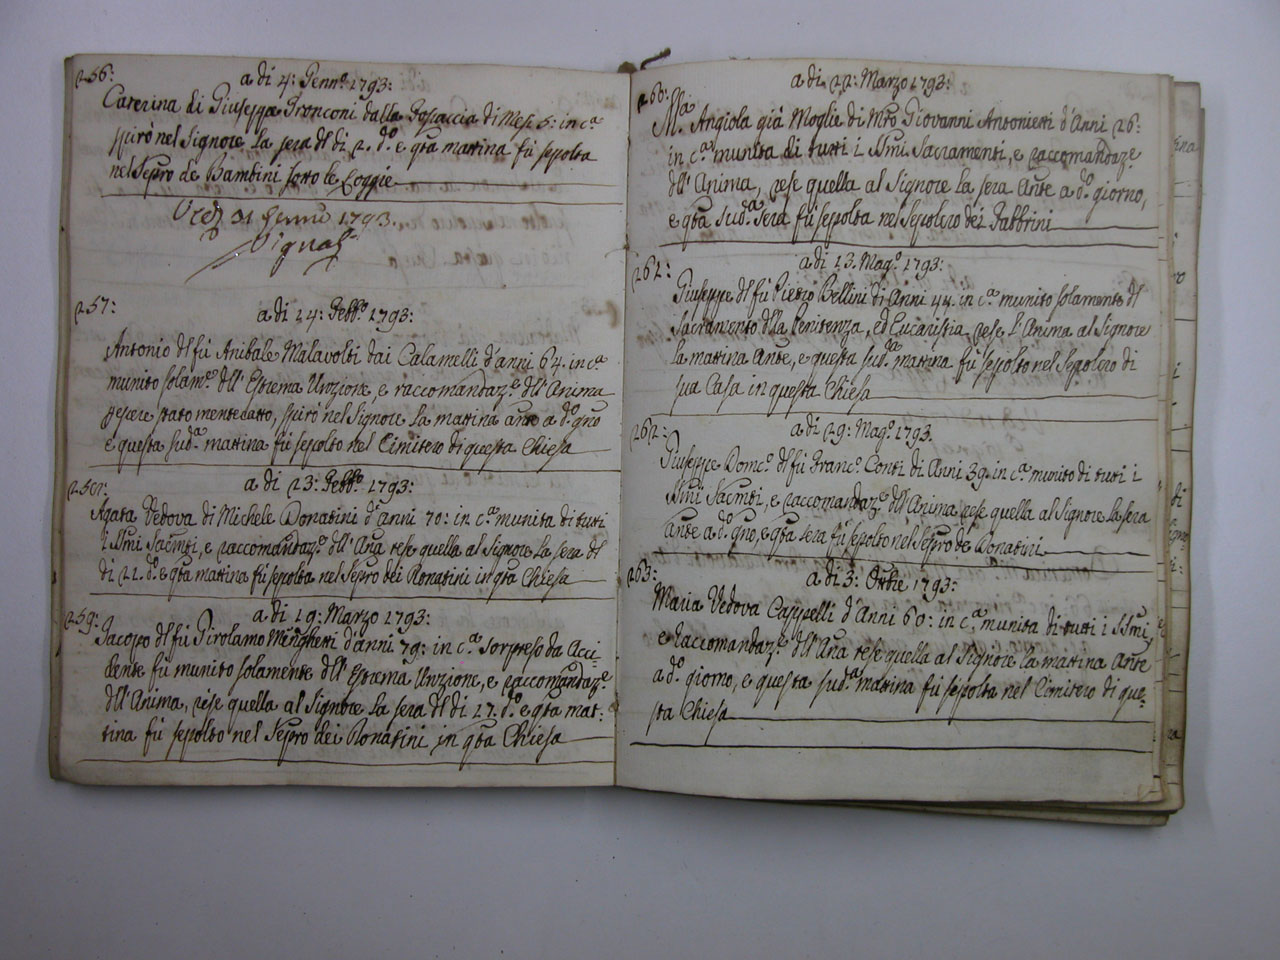 256:
a di 4: Genn.º 1793:
Caterina di Giuseppe Tronconi dalla Fossaccia di Mesi 5: in c.ª
spirò nel Signore la sera dl di 2. d.º e qta mattina fù sepolta
nel Sepro de Bambini sotto le Loggie
31 Genn.º 1793.
257:
a di 14: Febb.º 1793:
Antonio dl fù Anibale Malavolti dai Calamelli d'anni 64. in c.ª
munito solam.e dll' Estrema Unzione, e raccomandaz.e dll' Anima
stato mentecatto, spirò nel Signore la mattina ante a d.º gno
e questa sud.ª mattina fù sepolto nel Cimitero di questa Chiesa
258:
a di 23: Febb.º 1793:
Agata Vedova di Michele Donatini d'anni 70: in c.ª munita di tutti
i SSmi Sacmti, e raccomandaz.e dll' Ana rese quella al Signore la sera dl
di 22. d.º e qta mattina fù sepolta nel Sepro dei Donatini in qta Chiesa
259:
a di 19: Marzo 1793:
Jacopo dl fù Girolamo Menghetti d'anni 79: in c.ª sorpreso da Acci-
dente fù munito solamente dll' Estrema Unzione, e raccomandaz.e
dll' Anima, rese quella al Signore la sera dl di 17. d.º e qta mat:
tina fù sepolto nel Sepro dei Donatini in qta Chiesa
260:
a di 22: Marzo 1793:
M.ª Angiola già Moglie di Mro Giovanni Antonietti d'Anni 26:
in c.ª munita di tutti i SSmi Sacramenti, e raccomandaz.e
dll' Anima, rese quella al Signore la sera Ante a d.º giorno,
e qta sud.ª sera fù sepolta nel Sepolcro dei Fabbrini
261:
a di 13. Mag.º 1793:
Giuseppe dl fù Pietro Bellini di Anni 44. in c.ª munito solamente dl
Sacramento dlla Penitenza, ed Eucaristia, rese l'Anima al Signore
la mattina Ante, e questa sud.ª mattina fù sepolto nel Sepolcro di
sua Casa in questa Chiesa
262:
a di 29: Mag.º 1793.
Giuseppe Dom.co dl fù Franc.º Conti di Anni 39. in c.ª munito di tutti i
SSmi Sacmti, e raccomandaz.e dll' Anima rese quella al Signore la sera
Ante a d.º gno, e qta sera fù sepolto nel Sepro de Donatini
263:
a di 3: Ottbre 1793:
Maria Vedova Cappelli d'Anni 60: in c.ª munita di tutti i SSmi,
e raccomandaz.e dll' Ana rese quella al Signore la mattina Ante
a d.º giorno, e questa sud.ª mattina fù sepolta nel Cimitero di que-
sta Chiesa